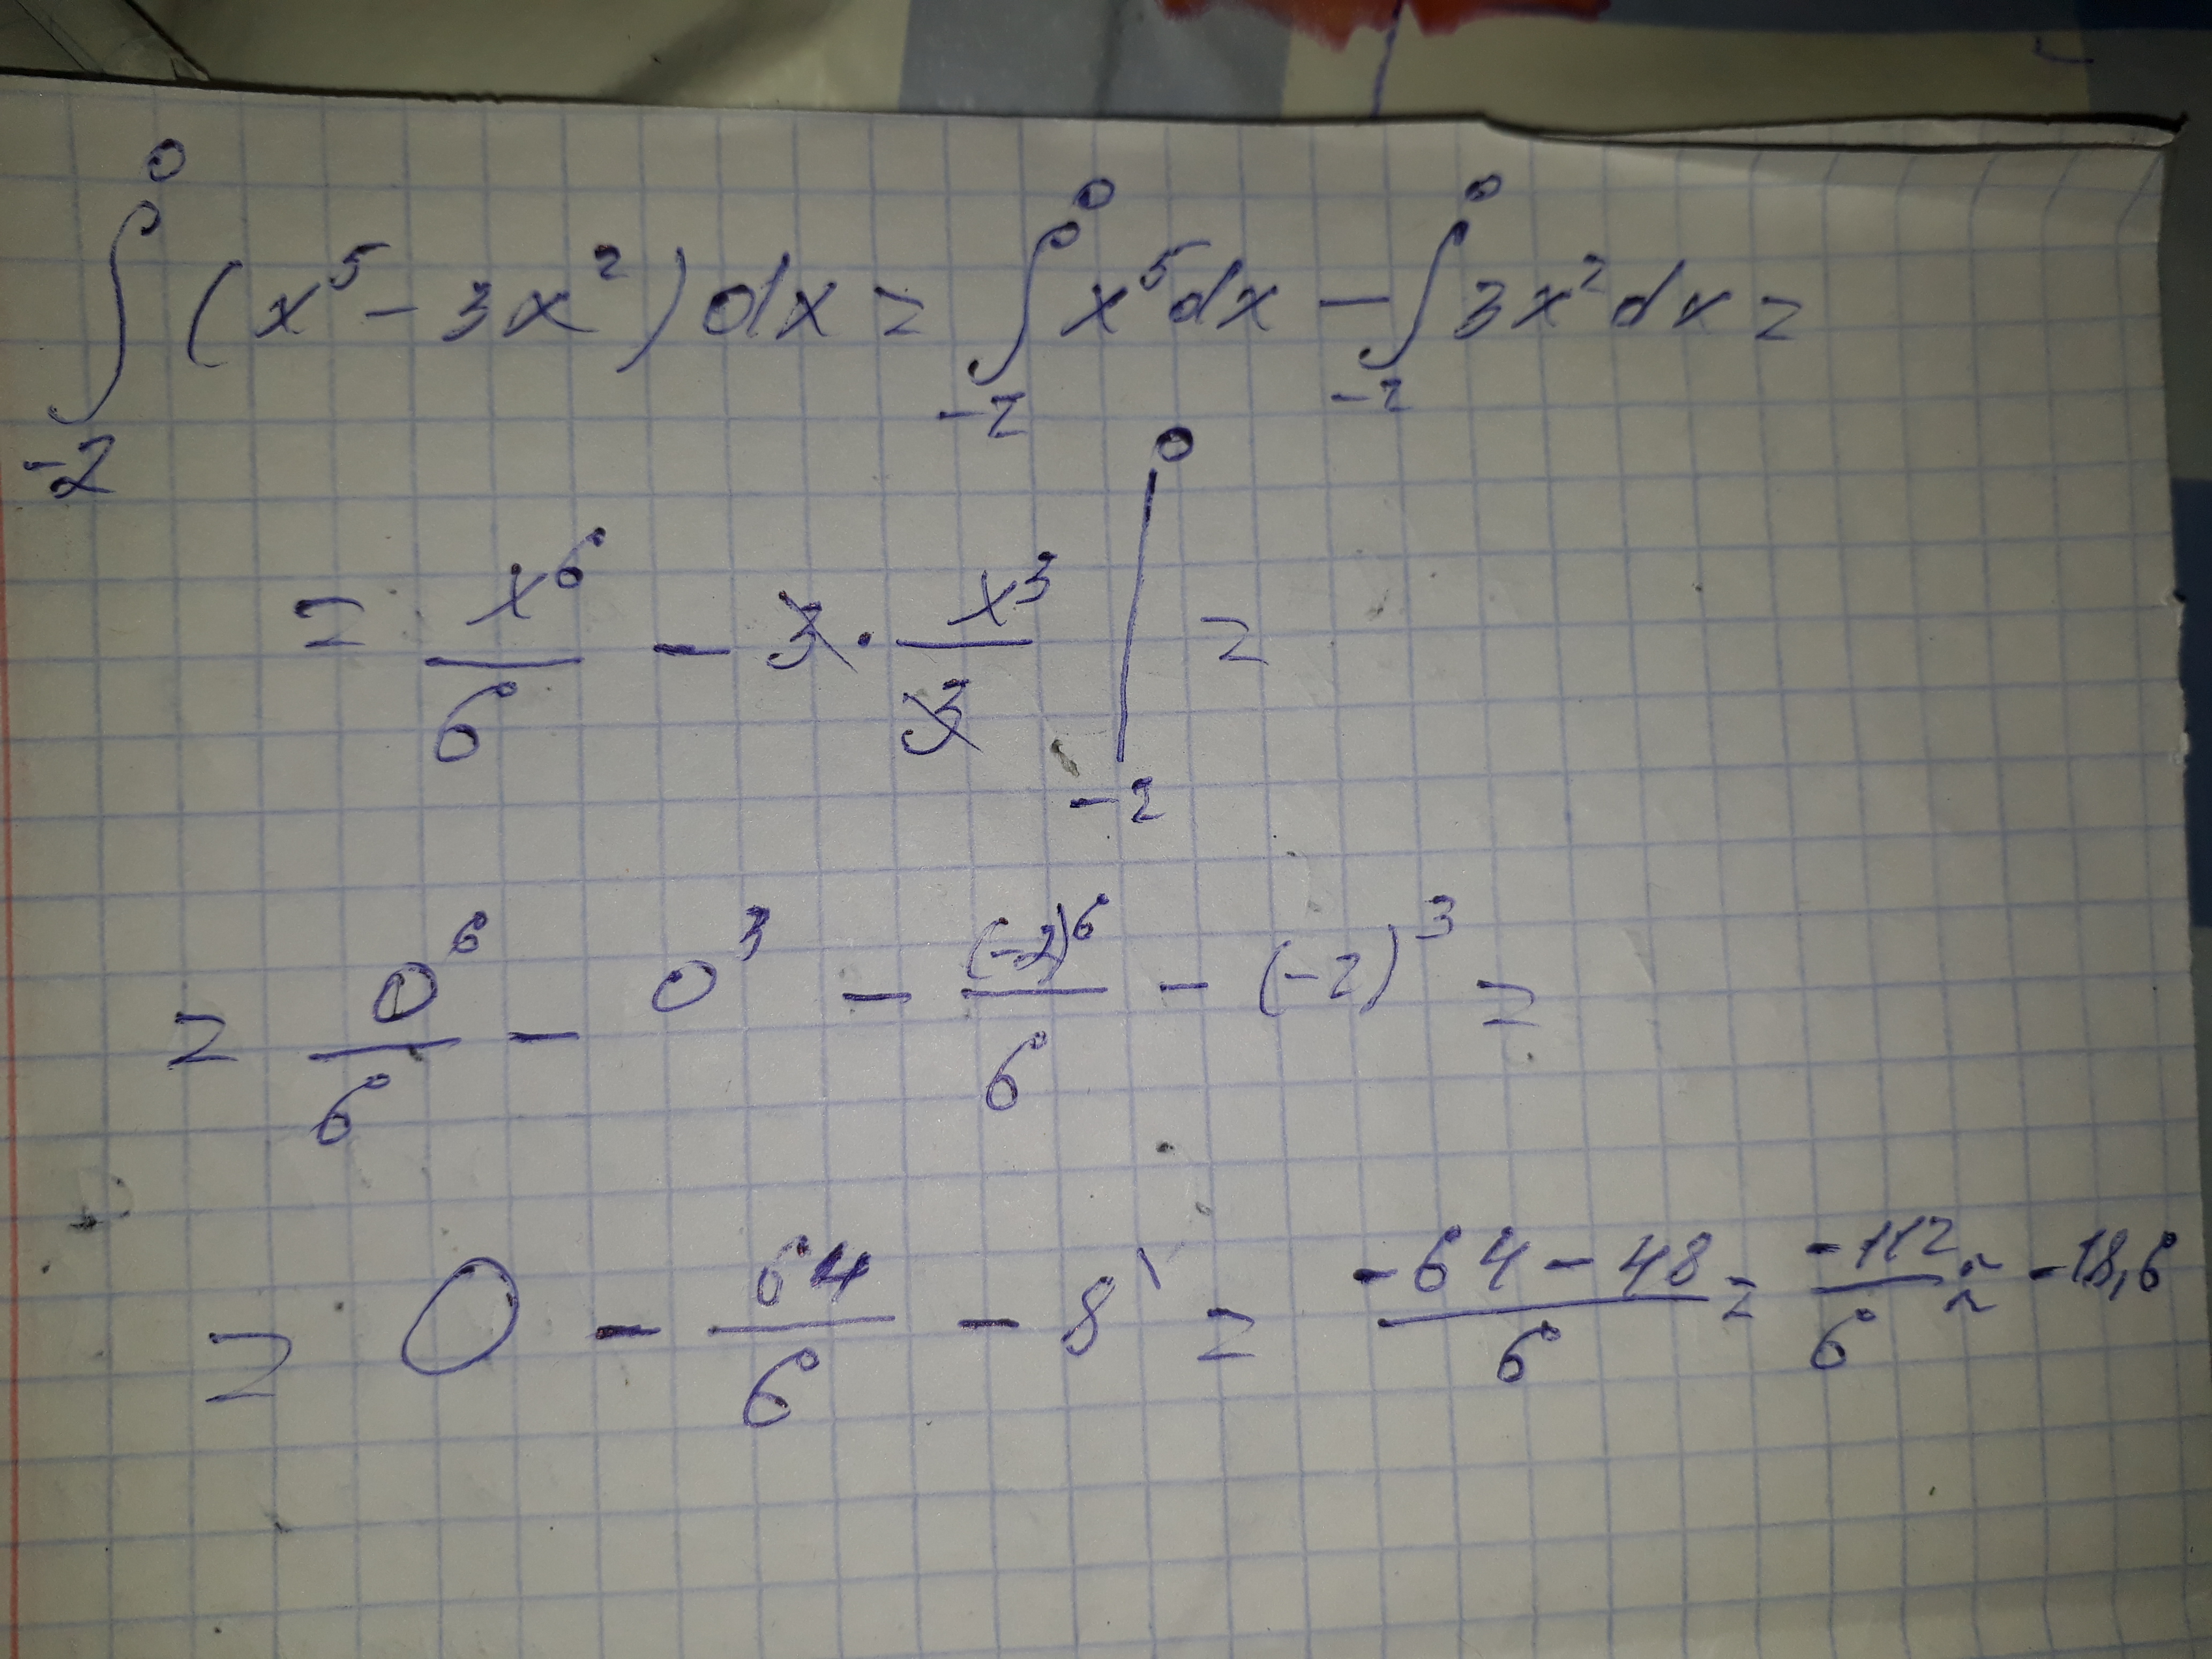 ∫₋₂⁰ (x⁵ - 3x²) dx = ∫₋₂⁰ x⁵ dx - ∫₋₂⁰ 3x² dx =
= x⁶/6 - 3 · x³/3 |₋₂⁰ =
= 0⁶/6 - 0³ - (-2)⁶/6 - (-2)³ =
= 0 - 64/6 - 8 = (-64 - 48)/6 = -112/6 ≈ -18,6